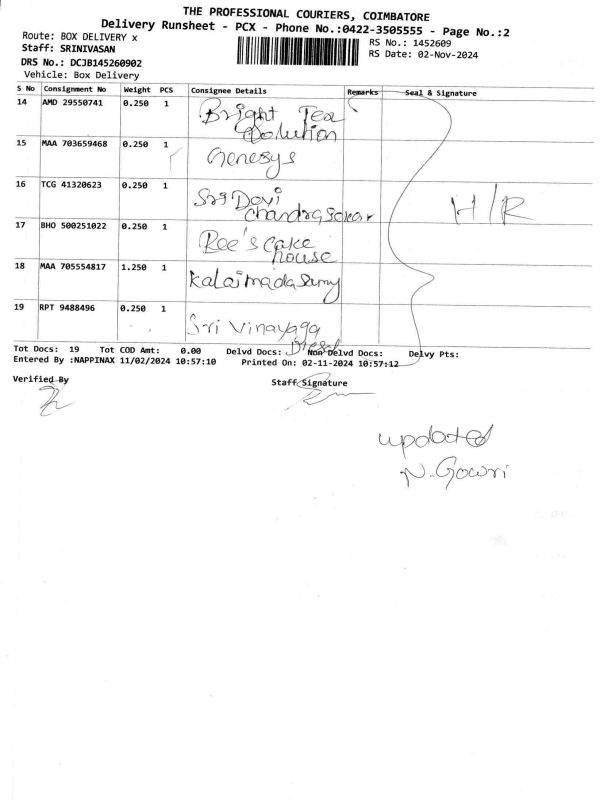 THE PROFESSIONAL COURIERS, COIMBATORE
Delivery Runsheet - PCX - Phone No.:0422-3505555 - Page No.:2
Route: BOX DELIVERY x
RS No.: 1452609
Staff: SRINIVASAN
RS Date: 02-Nov-2024
DRS No.: DCJB145260902
Vehicle: Box Delivery
S No Consignment No Weight PCS Consignee Details Remarks Seal & Signature
14 AMD 29550741 0.250 1 Bright Tea
Solution
15 MAA 703659468 0.250 1 Genesys
16 TCG 41320623 0.250 1 Sri Devi
Chandrasekar H/R
17 BHO 500251022 0.250 1 Ree's Cake
House
18 MAA 705554817 1.250 1 Kalaimadasamy
19 RPT 9488496 0.250 1 Sri Vinayaga
Diesel
Tot Docs: 19 Tot COD Amt: 0.00 Delvd Docs: Non Delvd Docs: Delvy Pts:
Entered By :NAPPINAX 11/02/2024 10:57:10 Printed On: 02-11-2024 10:57:12
Verified By Staff Signature
updated
N. Gowri